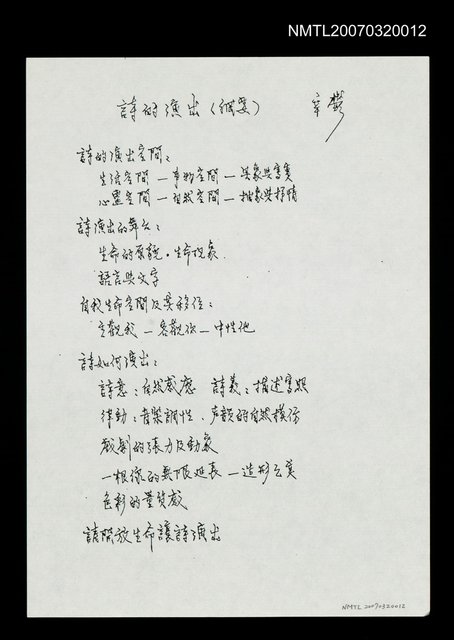 NMTL20070320012
詩的演出（綱要） 辛鬱
詩的演出空間：
生活空間—事物空間—具象與寫實
心靈空間—自然空間—抽象與抒情
詩演出的舞台：
生命的原貌．生命現象
語言與文字
自我生命空間及其移位：
主觀我—客觀你—中性他
詩如何演出：
詩意：自然感應 詩義：描述寫照
律動：音樂調性、声韻的自然模仿
戲劇的張力及動象
一根線的無限延長—造形之美
色彩的量質感
請開放生命讓詩演出
NMTL20070320012